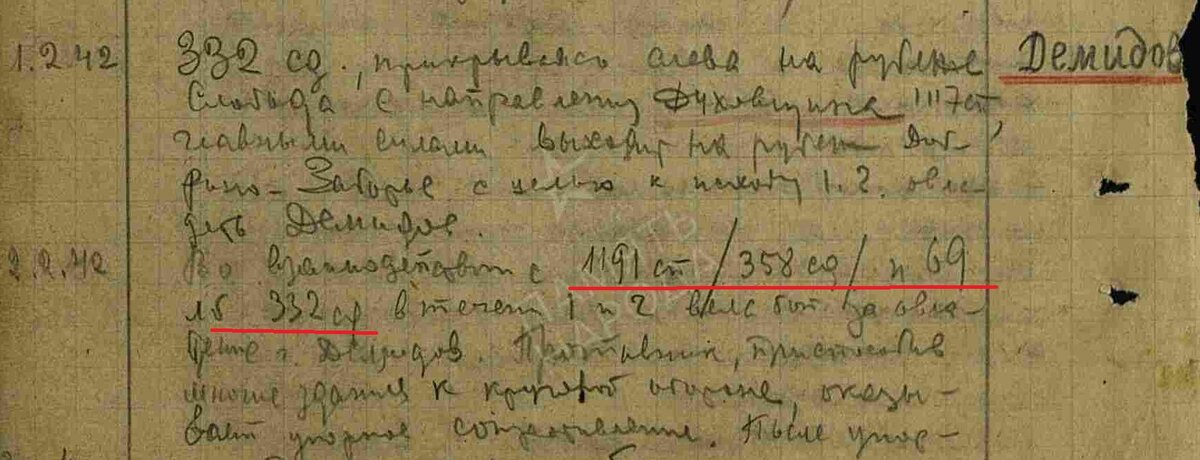 1.2.42 332 сд, прикрываясь слева на рубеже Демидов
Слобода с направления Духовщина 1117 сп,
главными силами выходит на рубеж
Заборье с целью к исходу 1.2. овла-
деть Демидов.
2.2.42 Во взаимодействии с 1191 сп /358 сд/ и 69
лб 332 сд в течении 1 и 2 вела бой за овла-
дение г. Демидов. Противник, приспособив
многие здания к круговой обороне, оказы-
вает упорное сопротивление. После упор-